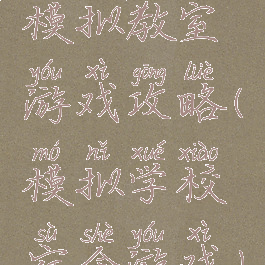 模拟教室
yóu xì gōng lüè
游戏攻略(
mó nǐ xué xiào
模拟学校
sù shè yóu xì
宿舍游戏)